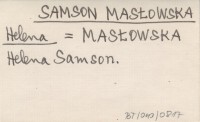 SAMSON MASŁOWSKA
Helena = MASŁOWSKA
Helena Samson.